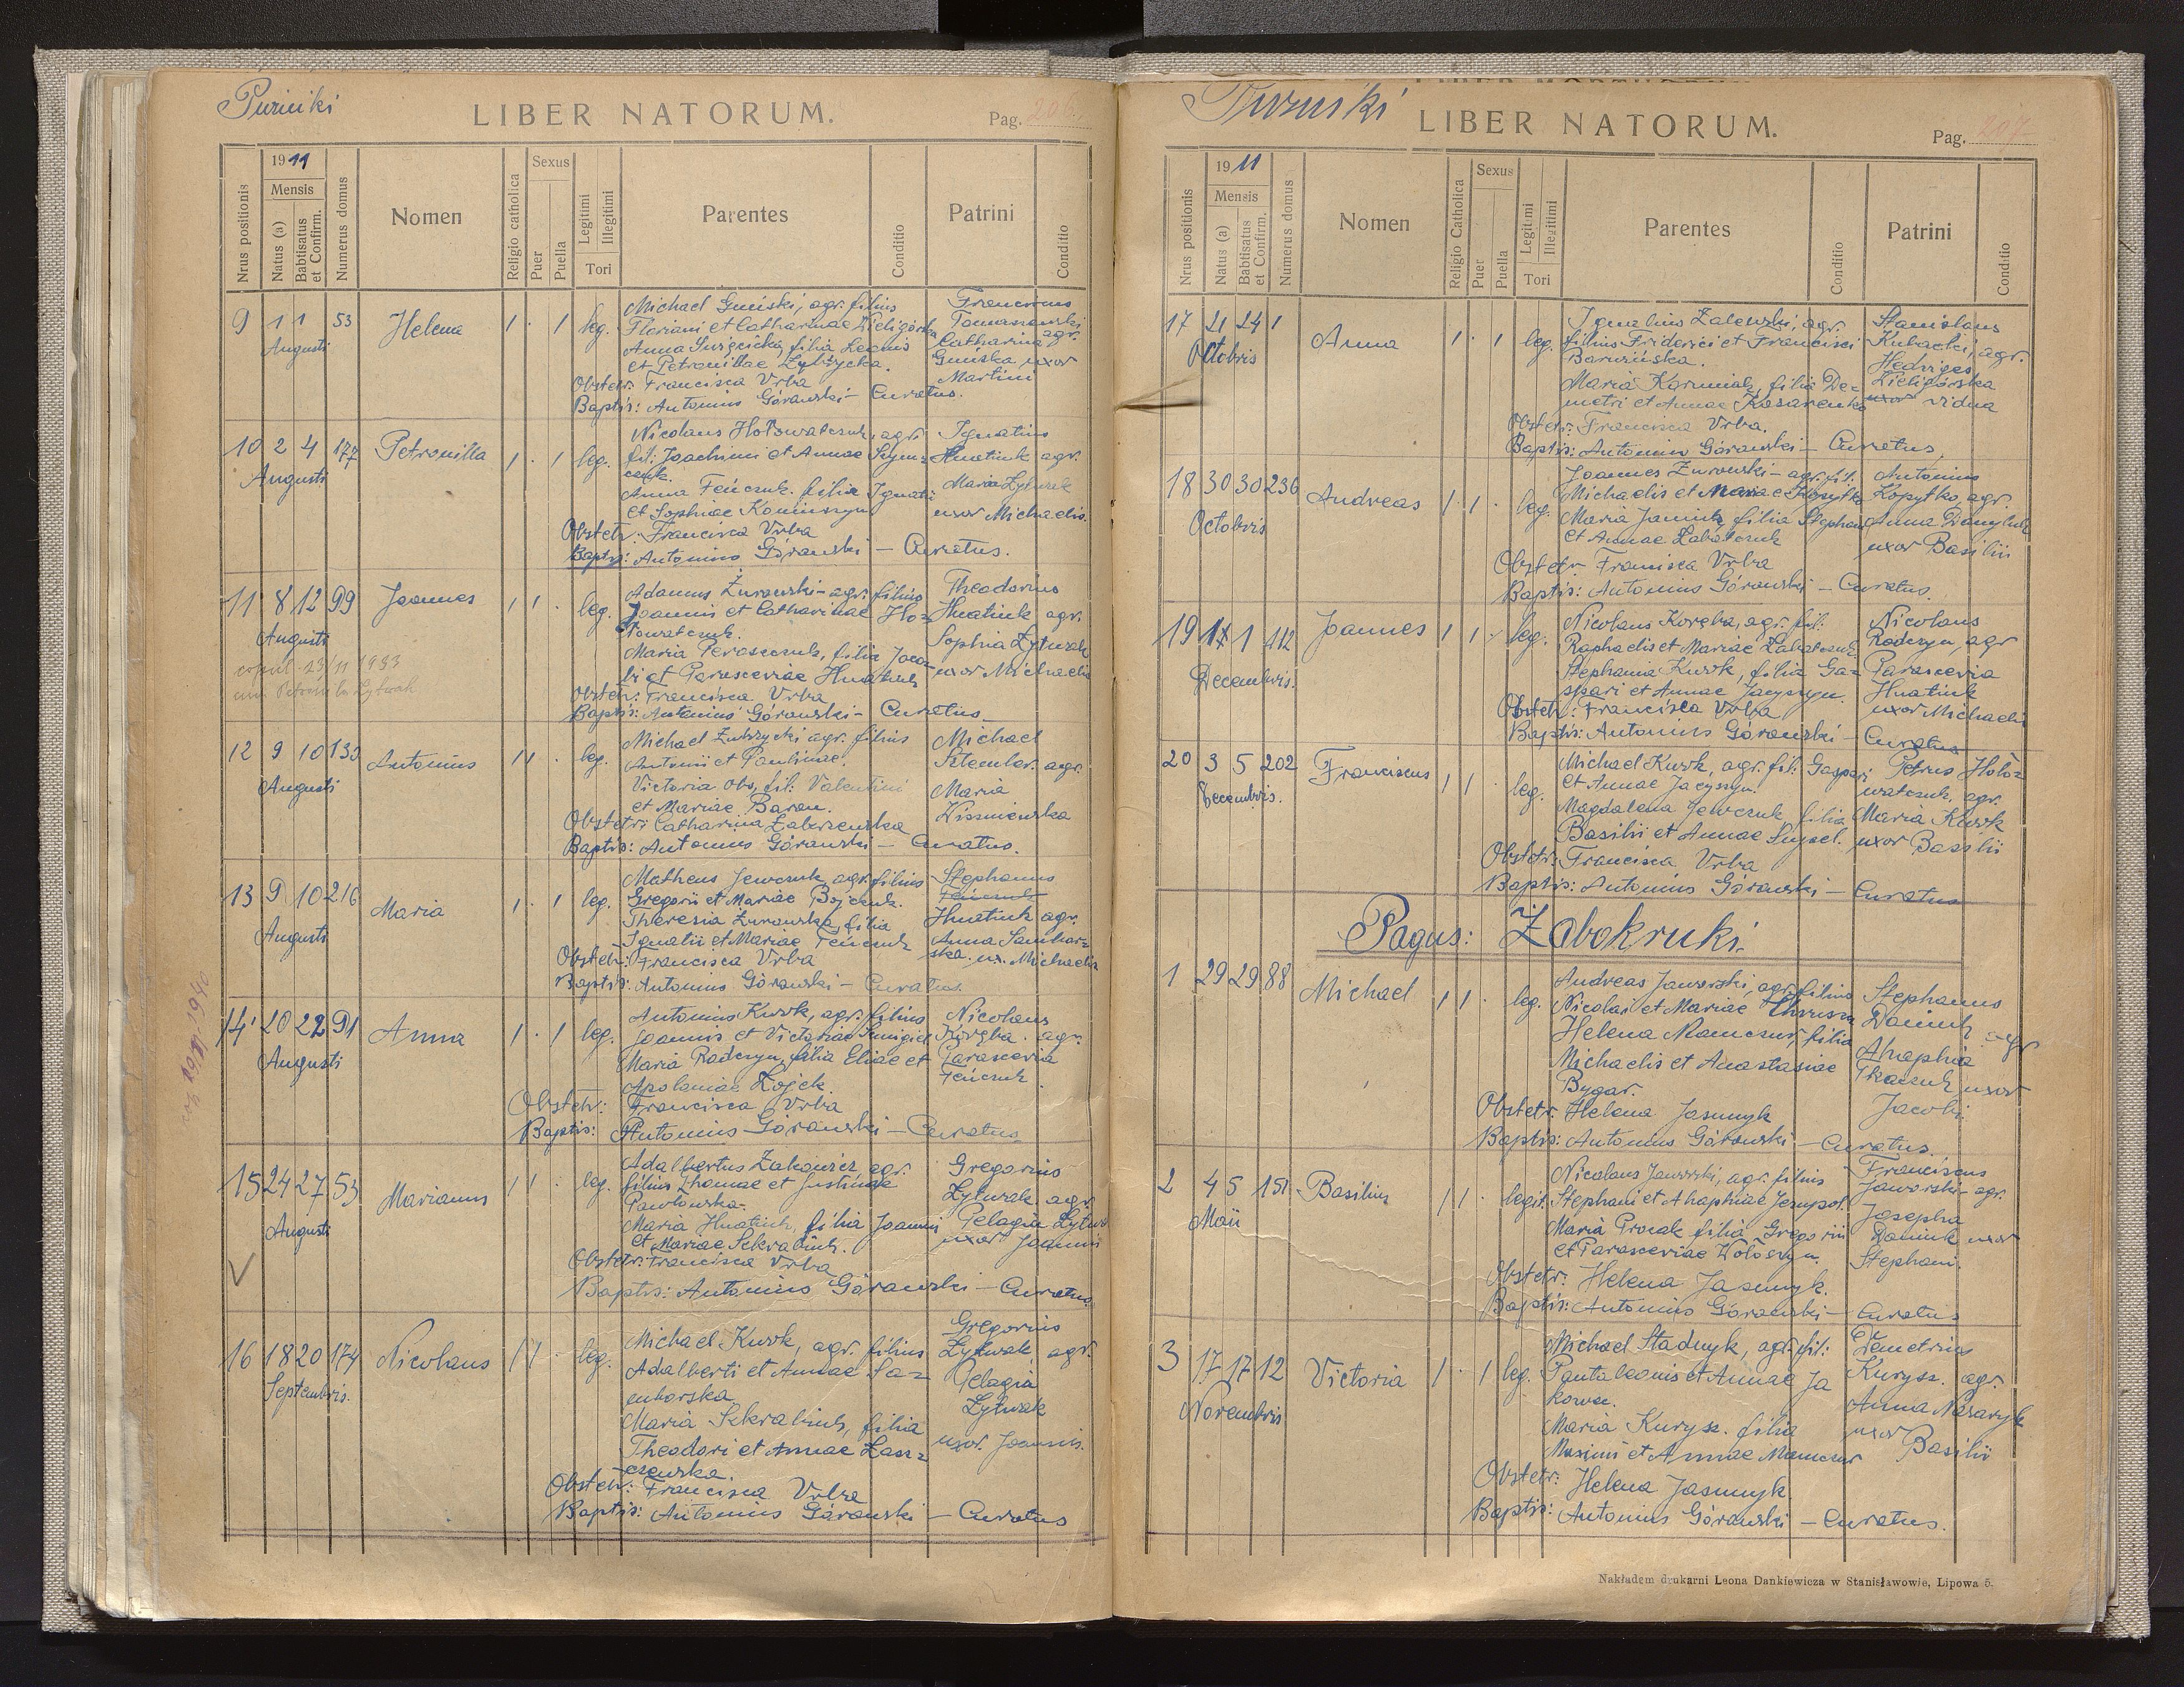 LIBER NATORUM.
Pag. 206
Nrus positionis
19 11
Mensis
Natus (a)
Babtisatus et Confirm.
Numerus domus
Nomen
Religio catholica
Sexus
Puer
Puella
Legitimi
Illegitimi
Tori
Parentes
Conditio
Patrini
Conditio
9 1 1 53 Helena 1 . 1 leg.
Augusti
Michael Gmiński, agr. filius
Floriani et Catharinae Zieligórska
Anna filia Leonis
et Petronillae
Franciscus
Tomaszewski agr.
Catharina
Gmińska uxor
Martini
Obstetr: Francisca Vrba
Baptis: Antonius Górawski – Curatus.
10 2 4 177 Petronilla 1 . 1 leg.
Augusti
Nicolaus Hołowatczuk, agr.
fil: Joachimi et Annae Szym=
czuk.
Anna Feńczuk filia Ignatii
et Sophiae
Ignatius
Hnatiuk agr.
Maria Zytwak
uxor Michaelis.
Obstetr: Francisca Vrba
Baptis: Antonius Górawski – Curatus.
11 8 12 99 Joannes 1 1 . leg.
Augusti
copul. 23/11 1933
cum Petronila Zytwak
Adamus Żurawski – agr. filius
Joannis et Catharinae Ho=
łowatczuk.
Maria filia Jaco=
bi et Parasceviae Hnatiuk
Theodorius
Hnatiuk agr.
Sophia Zytwak
uxor Michaelis
Obstetr: Francisca Vrba
Baptis: Antonius Górawski – Curatus
12 9 10 133 Antonius 1 1 . leg.
Augusti
Michael Zubrzycki agr. filius
Antonii et Paulinae.
Victoria fil: Valentini
et Mariae Baran.
Michael
agr.
Maria
Wiszniewska
Obstetr: Catharina Zakrzewska
Baptis: Antonius Górawski – Curatus.
13 9 10 216 Maria 1 . 1 leg.
Augusti
Matheus Jewczuk, agr. filius
Gregorii et Mariae Bojczuk.
Theresia Żurawska, filia
Ignatii et Mariae Feńczuk
Stephanus
Feńczuk
Hnatiuk agr.
Anna Sambor=
ska. ux. Michaelis
Obstetr: Francisca Vrba
Baptis: Antonius Górawski – Curatus.
14 20 22 91 Anna 1 . 1 leg.
Augusti
Antonius Kurk, agr. filius
Joannis et Victoriae
Maria Radczyn, filia Eliae et
Apolaniae Zojek.
Nicolaus
Koręba . agr.
Parascevia
Feńczuk
Obstetr: Francisca Vrba
Baptis: Antonius Górawski – Curatus
15 24 27 53 Marianus 1 1 . leg.
Augusti
Adalbertus Zakowicz, agr.
filius Thomae et Justinae
Pawłowska.
Maria Hnatiuk, filia Joannis
et Mariae Sekrabiuk.
Gregorius
Zytwak agr.
Pelagia Zytwak
uxor Joannis
Obstetr: Francisca Vrba
Baptis: Antonius Górawski – Curatus
16 18 20 174 Nicolaus 1 1 . leg.
Septembris.
Michael Kurk, agr. filius
Adalberti et Annae Sa=
mborska.
Maria Sekrabiuk, filia
Theodori et Annae Łasz=
czewska.
Gregorius
Zytwak agr.
Pelagia
Zytwak
uxor Joannis.
Obstetr: Francisca Vrba
Baptis: Antonius Górawski – Curatus
LIBER NATORUM.
Pag. 207
Nrus positionis
19 11
Mensis
Natus (a)
Babtisatus et Confirm.
Numerus domus
Nomen
Religio Catholica
Sexus
Puer
Puella
Legitimi
Illegitimi
Tori
Parentes
Conditio
Patrini
Conditio
17 21 24 1 Anna 1 . 1 leg.
Octobris
Ignatius Zalewski, agr.
filius Friderici et Francisci
Barwińska.
Maria Karmiak, filia De=
metri et Annae Kosarenko
Stanislaus
Kubacki, agr.
Hedviges
Zieligórska
uxor vidua
Obstetr: Francisca Vrba.
Baptis: Antonius Górawski – Curatus,
18 30 30 236 Andreas 1 1 . leg.
Octobris
Joannes Żurowski – agr. fil.
Michaelis et Mariae Kopytko
Maria Janiuk, filia Stephani
et Annae Łabatczuk
Antonius
Kopytko, agr.
Anna Danyluk
uxor Basilii
Obstetr Francisca Vrba
Baptis: Antonius Górawski – Curatus.
19 1 112 Joannes 1 1 . leg.
Decembris.
Nicolaus Koręba, agr. fil.
Raphaelis et Mariae Łabatczuk
Stephania Kurk, filia Ga=
spari et Annae Jacyszyn.
Nicolaus
Radczyn, agr
Parascevia
Hnatiuk
uxor Michaelis
Obstetr: Francisca Vrba
Baptis: Antonius Górawski – Curatus
20 3 5 202 Franciscus 1 1 . leg.
Decembris.
Michael Kurk, agr. fil. Gaspari
et Annae Jacyszyn.
Magdalena Jewczuk filia
Basilii et Annae
Petrus Hoło=
watczuk, agr.
Maria Kurk
uxor Basilii
Obstetr: Francisca Vrba
Baptis: Antonius Górawski – Curatus
Pagus: Żabokruki.
1 29 29 88 Michael 1 1 . leg.
Andreas Jaworski, agr. filius
Nicolai et Mariae
Helena Mamczur, filia
Michaelis et Anastasiae
Bygar.
Stephanus
Daniuk agr
Ahaphia
Tkaczuk uxor
Jacobi
Obstetr. Helena Jasmyk
Baptis: Antonius Górawski – Curatus.
2 4 5 151 Basilius 1 1 . legit.
Maii
Nicolaus Jaworski, agr. filius
Stephani et Ahaphiae
Maria Procak filia Gregorii
et Parasceviae Wołoszyn.
Franciscus
Jaworski – agr.
Josepha
Daniuk uxor
Stephani.
Obstetr. Helena Jasmyk.
Baptis: Antonius Górawski – Curatus
3 17 17 12 Victoria 1 . 1 leg.
Novembris
Michael Stadnyk, agr. fil:
Pantaleonis et Annae Ja
kowec.
Maria Kurysz. filia
Maximi et Annae Mamczur
Demetrius
Kurysz. agr.
Anna Nazaryk
uxor Basilii
Obstetr: Helena Jasmyk
Baptis: Antonius Górawski – Curatus.
Nakładem drukarni Leona Dankiewicza w Stanisławowie, Lipowa 5.